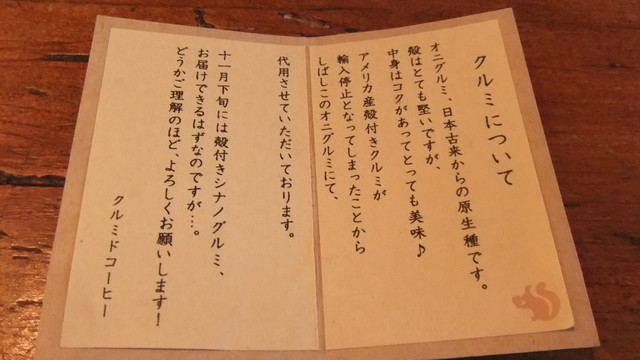 クルミについて
オニグルミ、日本古来からの原生種です。
殻はとても堅いですが、
中身はコクがあってとっても美味♪
アメリカ産殻付きクルミが
輸入停止となってしまったことから
しばしこのオニグルミにて、
代用させていただいております。
十一月下旬には殻付きシナノグルミ、
お届けできるはずなのですが…。
どうかご理解のほど、よろしくお願いします!
クルミドコーヒー